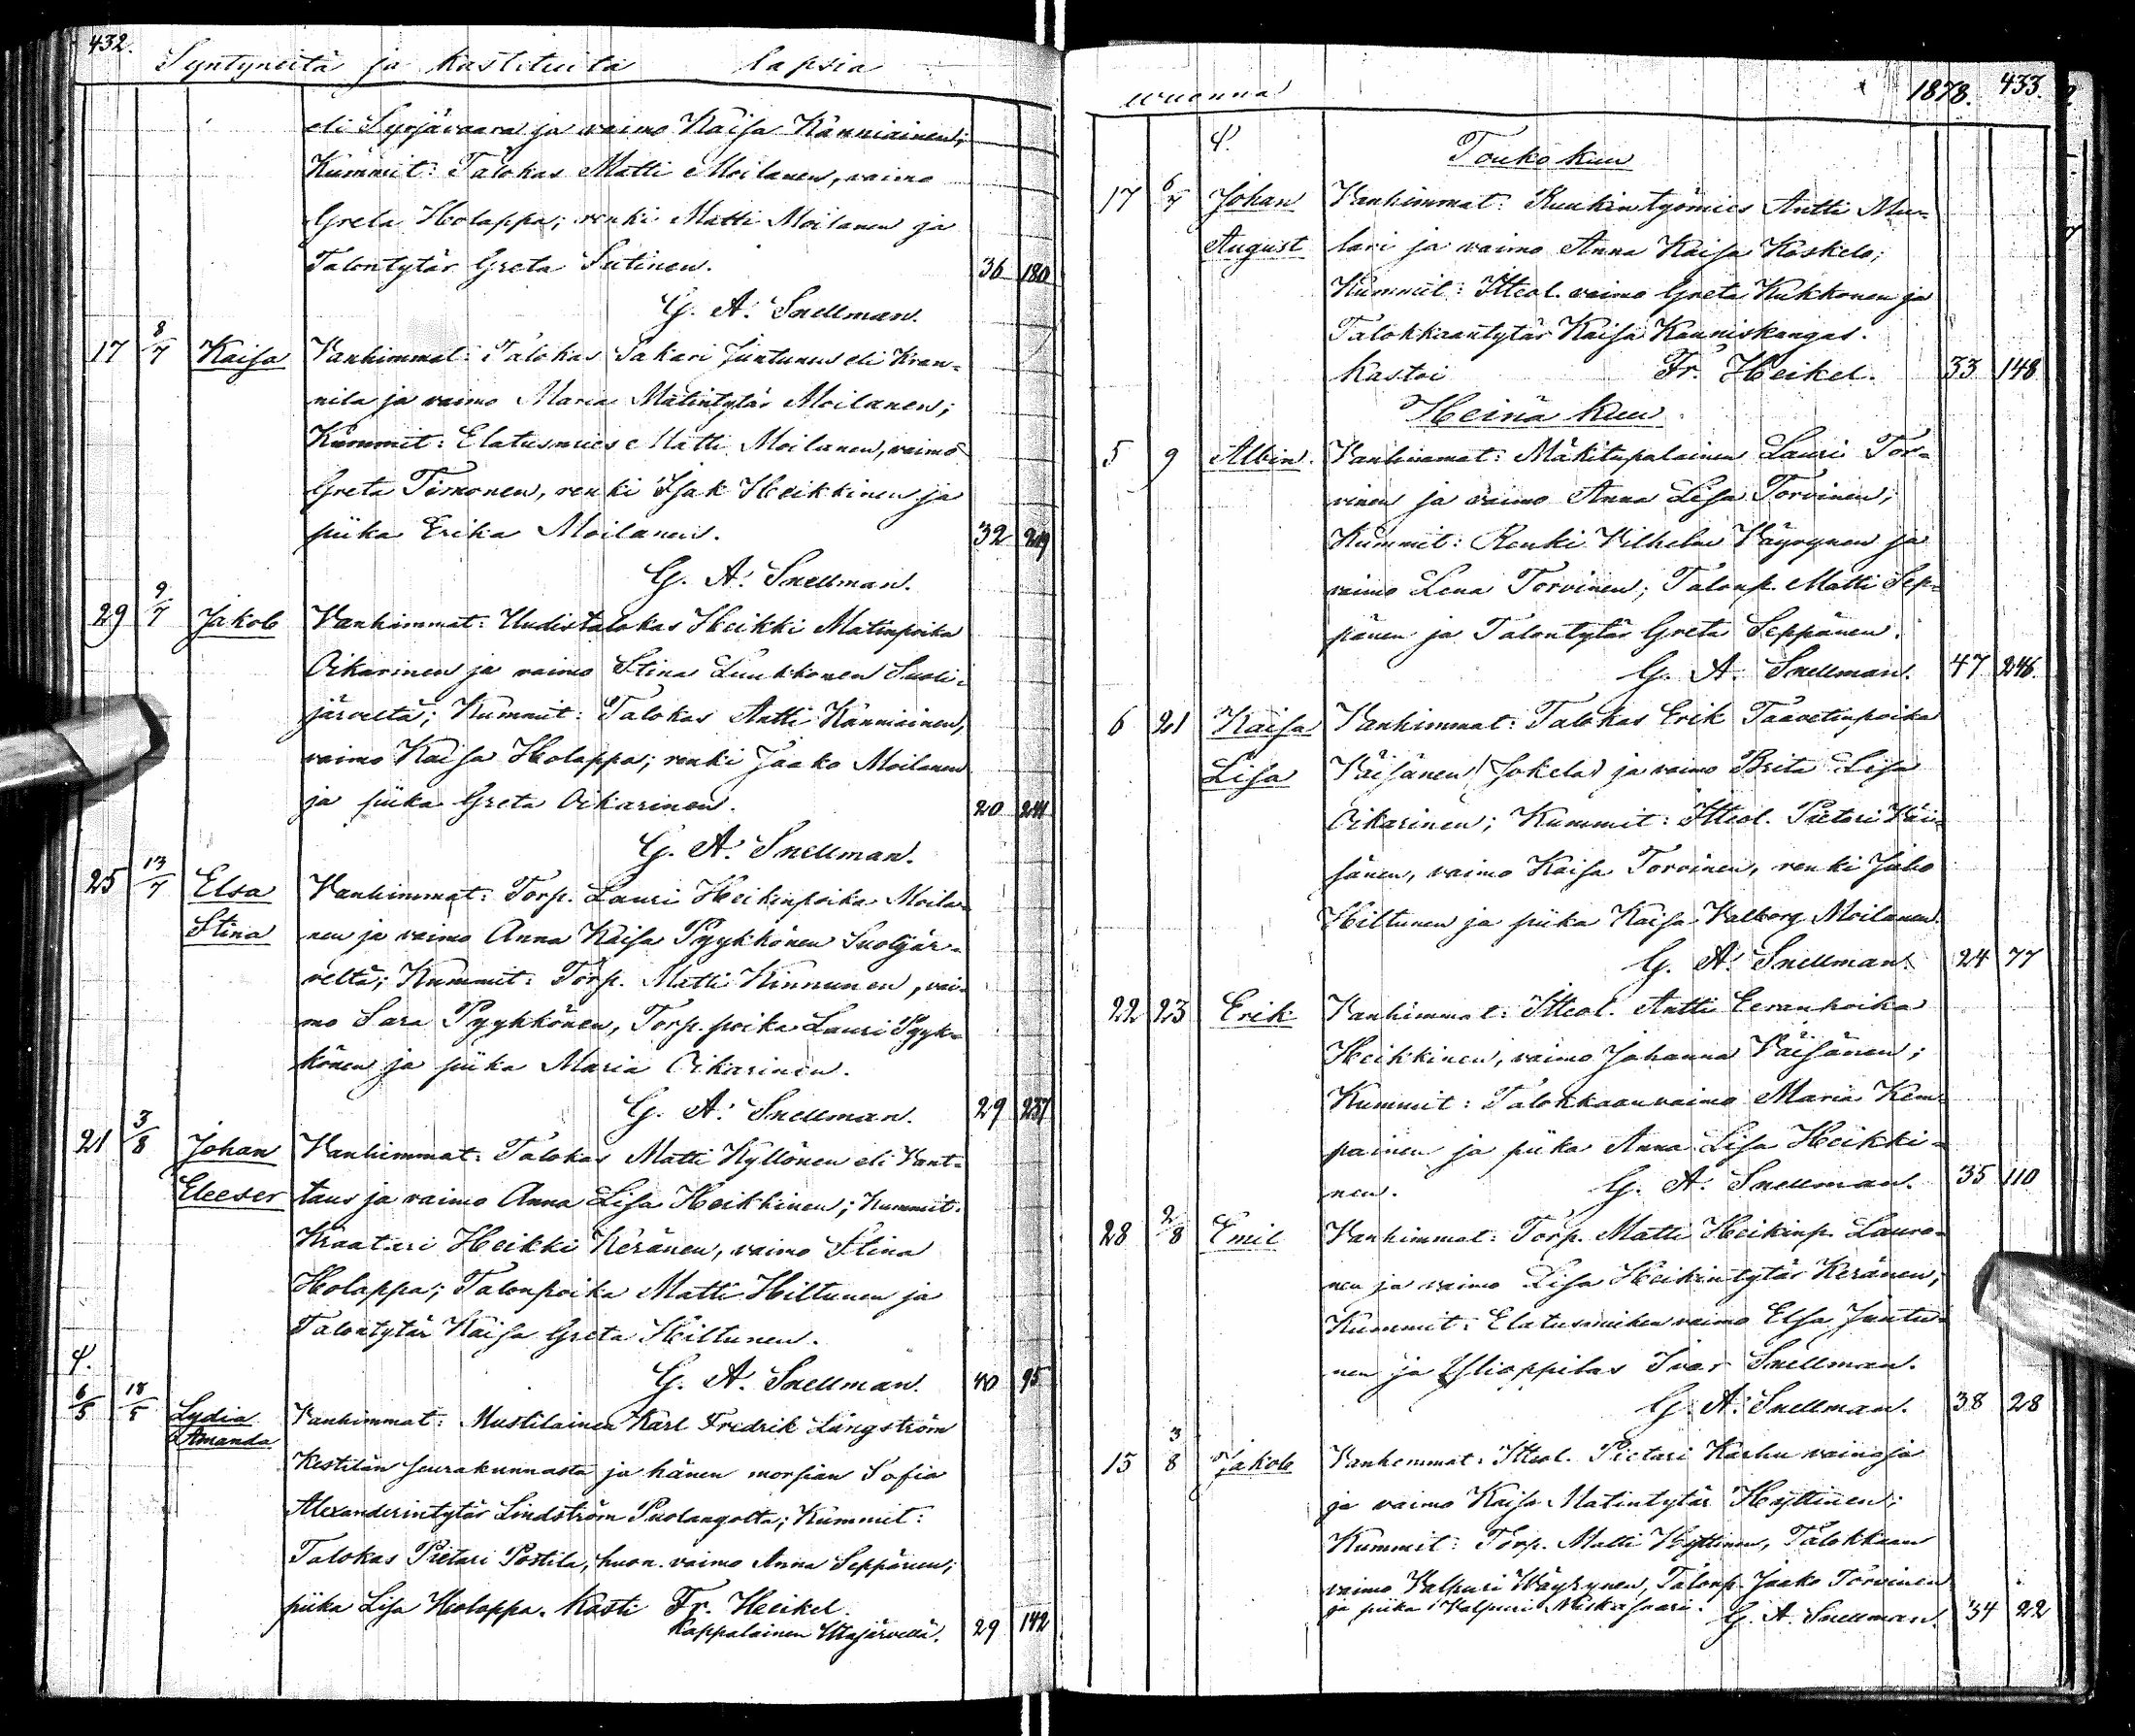 432.
Syntyneitä ja kastetuita lapsia
eli Syrjävaara ja vaimo Kaisa Känniäinen;
Kummit: Talokas Matti Moilanen, vaimo
Greta Holappa; renki Matti Moilanen ja
Talontytär Greta Sutinen. 36 180
G. A. Snellman.
17 8/7 Kaisa Vanhimmat: Talokas Sakari Juntunen eli Kran-
nila ja vaimo Maria Matintytär Moilanen;
Kummit: Elatusmies Matti Moilanen, vaimo
Greta Timonen, renki Isak Heikkinen ja
piika Erika Moilanen. 32 219
G. A. Snellman.
29 9/7 Jakob Vanhimmat: Uudistalokas Heikki Matinpoika
Oikarinen ja vaimo Stina Luukkonen Suoli-
järveltä; Kummit: Talokas Antti Känniäinen,
vaimo Kaisa Holappa; renki Jaako Moilanen
ja piika Greta Oikarinen. 20 241
G. A. Snellman.
25 13/7 Elsa Vanhimmat: Torp. Lauri Heikinpoika Moila-
Stina nen ja vaimo Anna Kaisa Pyykkönen Suolijär-
veltä; Kummit: Torp. Matti Kinnunen, vai-
mo Sara Pyykkönen, Torp. poika Lauri Pyyk-
könen ja piika Maria Oikarinen.
G. A. Snellman. 29 237
21 3/8 Johan Vanhimmat: Talokas Matti Kyllönen eli Vant-
Eleeser taus ja vaimo Anna Lisa Heikkinen; Kummit:
Kraatari Heikki Keränen, vaimo Stina
Holappa; Talonpoika Matti Hiltunen ja
Talontytär Kaisa Greta Hiltunen.
G. A. Snellman. 40 95
6/5 18/5 Lydia Vanhimmat: Mustilainen Karl Fredrik Långström
Amanda
Kestilän seurakunnasta ja hänen morsian Sofia
Alexanderintytär Lindström Puolangolta; Kummit:
Talokas Pietari Postila, huon. vaimo Anna Seppänen;
piika Lisa Holappa. Kasti Fr. Heikel.
Kappalainen Uttajärvellä. 29 142
wuonna 1878. 433.
Touko kuu
17 6/7 Johan Vanhimmat: Ruukin työmies Antti Mu-
August lari ja vaimo Anna Kaisa Koskelo;
Kummit: Itteol. vaimo Greta Kukkonen ja
Talokkaantytär Kaisa Kauniskangas.
Kastoi Fr. Heikel. 33 148
Heinä kuu
5 9 Albin. Vanhimmat: Mäkitupalainen Lauri Tor-
vinen ja vaimo Anna Lisa Torvinen;
Kummit: Renki Vilhelm Väyrynen ja
vaimo Lena Torvinen; Talonp. Matti Sep-
pänen ja Talontytär Greta Seppänen.
G. A. Snellman. 47 246.
6 21 Kaisa Vanhimmat: Talokas Erik Taavetinpoika
Lisa Väisänen (Jokela) ja vaimo Brita Lisa
Oikarinen; Kummit: Itteol. Pietari Väi-
sänen, vaimo Kaisa Torvinen, renki Juho
Hiltunen ja piika Kaisa Valborg Moilanen.
G. A. Snellman. 24 77
22 23 Erik Vanhimmat: Itteol. Antti Eeranpoika
Heikkinen, vaimo Johanna Väisänen;
Kummit: Talokkaanvaimo Maria Kem-
painen ja piika Anna Lisa Heikki-
nen. G. A. Snellman. 35 110
28 2/8 Emil Vanhimmat: Torp. Matti Heikinp. Lauro-
nen ja vaimo Lisa Heikintytär Keränen;
Kummit: Elatusmiehen vaimo Elsa Juntu-
nen ja Ylioppilas Ivar Snellman.
G. A. Snellman. 38 28
15 3/8 Jakob Vanhemmat: Itteol. Pietari Karhu vainaja
ja vaimo Kaisa Matintytär Hyttinen;
Kummit: Torp. Matti Hyttinen, Talokkaan
vaimo Valpuri Wäyrynen, Talonp. Jaako Torvinen
ja piika Valpuri Niskasaari. G. A. Snellman. 34 22